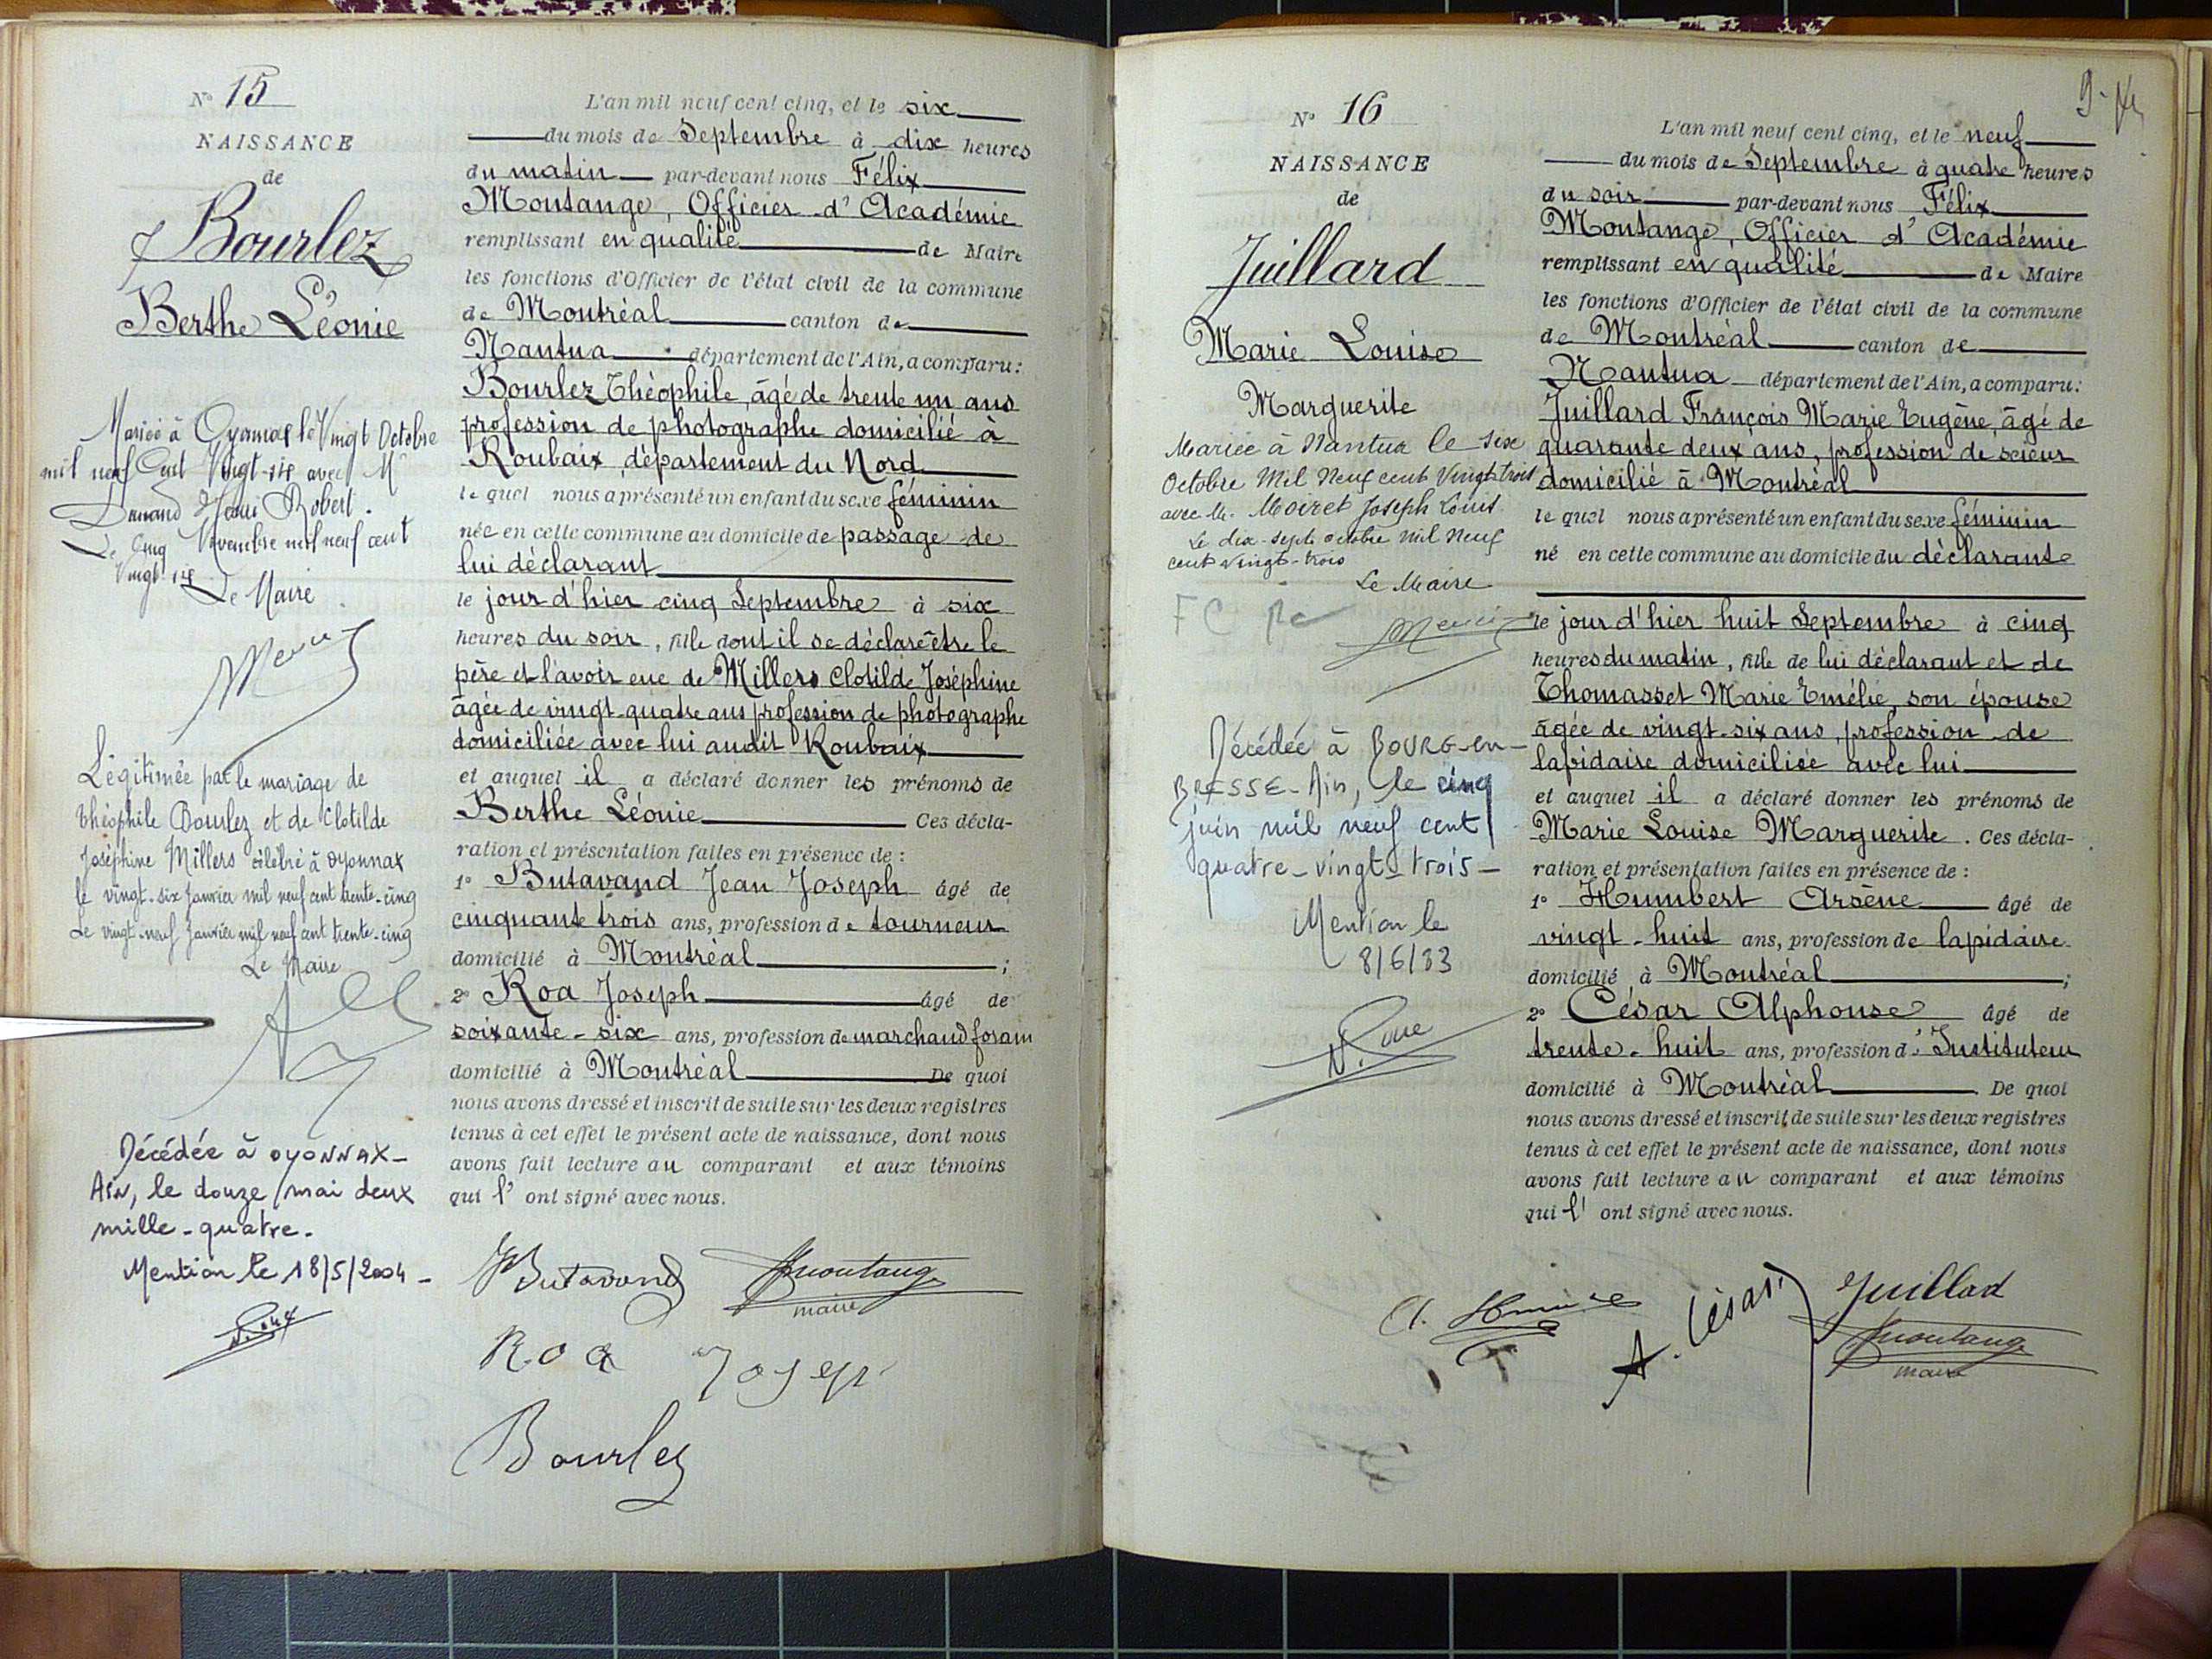 N° 15
NAISSANCE
de
Bourlez
Berthe Léonie
Mariée à Oyonnax le Vingt Octobre
mil neuf Cent Vingt-six avec Mr
Henri Robert.
Le Cinq Novembre mil neuf cent
Vingt six
Le Maire
Légitimée par le mariage de
Théophile Bourlez et de Clotilde
Joséphine Millers célébré à Oyonnax
le vingt-six Janvier mil neuf cent trente-cinq
Le vingt-neuf Janvier mil neuf cent trente-cinq
Le Maire
Décédée à OYONNAX-
AIN, le douze mai deux
mille-quatre.
Mention le 18/5/2004-
L'an mil neuf cent cinq, et le six
du mois de Septembre à dix heures
du matin par-devant nous Félix
Montange, Officier d'Académie
remplissant en qualité de Maire
les fonctions d'Officier de l'état civil de la commune
de Montréal canton de
Nantua département de l'Ain, a comparu:
Bourlez Théophile, âgé de trente un ans
profession de photographe domicilié à
Roubaix, département du Nord
le quel nous a présenté un enfant du sexe féminin
née en cette commune au domicile de passage de
lui déclarant
le jour d'hier cinq Septembre à six
heures du soir, fille dont il se déclare être le
père et l'avoir eue de Millers Clotilde Joséphine
âgée de vingt-quatre ans profession de photographe
domiciliée avec lui audit Roubaix
et auquel il a déclaré donner les prénoms de
Berthe Léonie Ces décla-
ration et présentation faites en présence de :
1° Butavand Jean Joseph âgé de
cinquante trois ans, profession de tourneur
domicilié à Montréal ;
2° Roa Joseph âgé de
soixante-six ans, profession de marchand forain
domicilié à Montréal De quoi
nous avons dressé et inscrit de suite sur les deux registres
tenus à cet effet le présent acte de naissance, dont nous
avons fait lecture au comparant et aux témoins
qui l' ont signé avec nous.
Butavand
Montange
maire
Roa Joseph
Bourlez
9
N° 16
NAISSANCE
de
Juillard
Marie Louise
Marguerite
Mariée à Nantua le six
Octobre Mil Neuf cent Vingt trois
avec M. Moiret Joseph Louis.
Le dix-sept octobre mil neuf
cent vingt-trois
Le Maire
FC
Décédée à BOURG-en-
BRESSE-Ain, le cinq
juin mil neuf cent
quatre-vingt-trois-
Mention le
8/6/83
L'an mil neuf cent cinq, et le neuf
du mois de Septembre à quatre heures
du soir par-devant nous Félix
Montange, Officier d'Académie
remplissant en qualité de Maire
les fonctions d'Officier de l'état civil de la commune
de Montréal canton de
Nantua département de l'Ain, a comparu:
Juillard François Marie Eugène, âgé de
quarante deux ans, profession de scieur
domicilié à Montréal
le quel nous a présenté un enfant du sexe féminin
né en cette commune au domicile du déclarante
le jour d'hier huit Septembre à cinq
heures du matin, fille de lui déclarant et de
Thomasset Marie Emélie, son épouse
âgée de vingt-six ans, profession de
lapidaire domiciliée avec lui
et auquel il a déclaré donner les prénoms de
Marie Louise Marguerite. Ces décla-
ration et présentation faites en présence de :
1° Humbert Arsène âgé de
vingt-huit ans, profession de lapidaire
domicilié à Montréal ;
2° César Alphonse âgé de
trente-huit ans, profession d'Instituteur
domicilié à Montréal De quoi
nous avons dressé et inscrit de suite sur les deux registres
tenus à cet effet le présent acte de naissance, dont nous
avons fait lecture au comparant et aux témoins
qui l' ont signé avec nous.
A. César
Juillard
Montange
maire